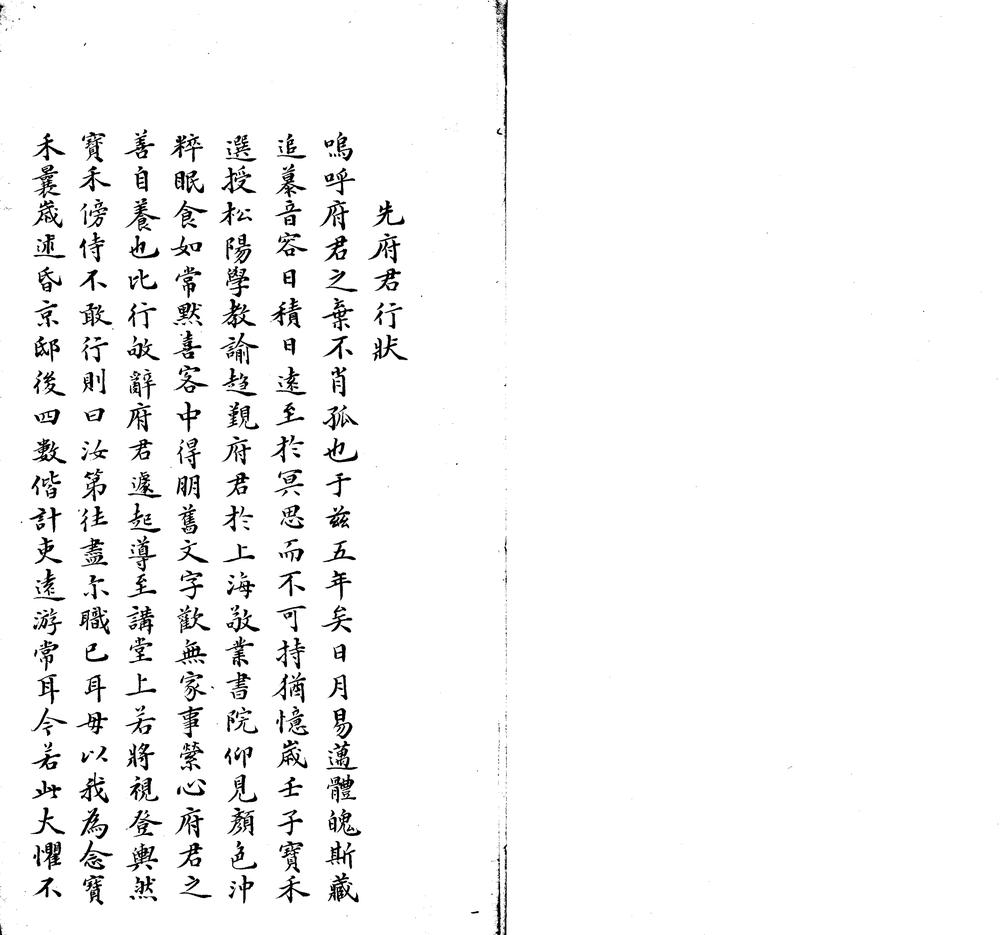 先府君行狀
嗚呼府君之棄不肖孤也于兹五年矣日月易邁體魄斯藏
追慕音容日積日遠至於冥思而不可持猶憶歲壬子寶禾
選授松陽學教諭趋覲府君於上海敬業書院仰見顏色沖
粹眠食如常默喜客中得朋舊文字歡無家事縈心府君之
善自養也比行敂辭府君遽起導至講堂上若將視登輿然
寶禾傍侍不敢行則曰汝第往盡尓職已耳毋以我為念寶
禾曩歲述昏京邸後四數偕計吏遠游常耳今若此大懼不